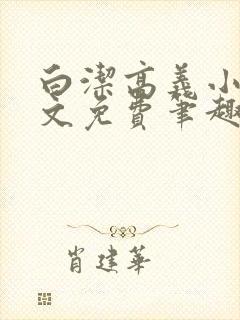 白潔高義小
文免費筆趣
肖建華